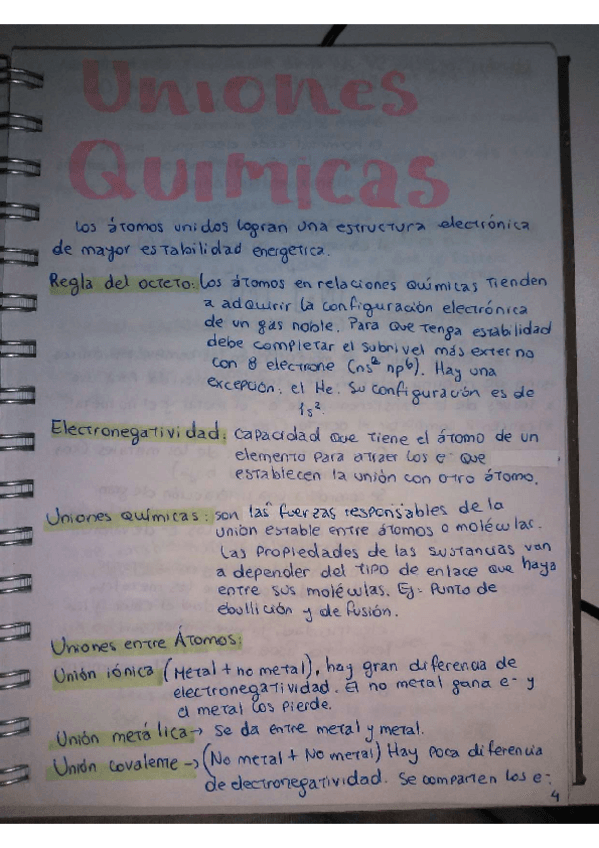 Uniones
Químicas
Los átomos unidos logran una estructura electrónica
de mayor estabilidad energetica.
Regla del octeto: Los átomos en relaciones químicas tienden
a adquirir la configuración electrónica
de un gas noble. Para que tenga estabilidad
debe completar el subnivel más externo
con 8 electrone (ns² np⁶). Hay una
excepción, el He. Su configuración es de
1s².
Electronegatividad: capacidad que tiene el átomo de un
elemento para atraer los e⁻ que
establecen la unión con otro átomo.
Uniones químicas: son las fuerzas responsables de la
unión estable entre átomos o moléculas.
Las propiedades de las sustancias van
a depender del tipo de enlace que haya
entre sus moléculas. Ej: Punto de
ebullición y de fusión.
Uniones entre Átomos:
Unión iónica (Metal + no metal), hay gran diferencia de
electronegatividad. El no metal gana e- y
el metal los pierde.
Unión metálica → se da entre metal y metal.
Unión covalente → (No metal + No metal) Hay poca diferencia
de electronegatividad. Se comparten los e-.
4